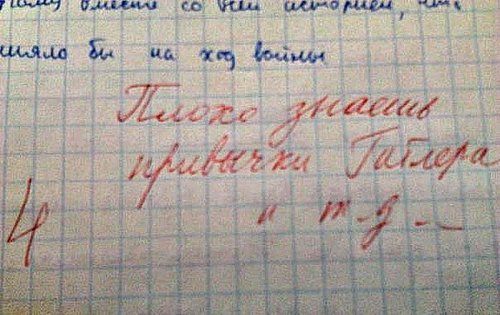 вместе со всей историей, что
шяло бы на ход войны
Плохо знаешь
привычки Гитлера
4
и т-д --